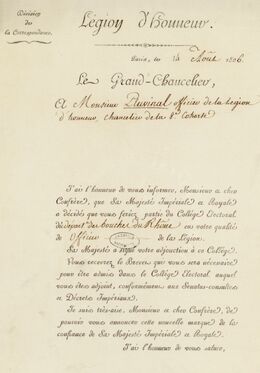 Division
des
la Correspondance.
Légion d'Honneur.
Paris, le 14 Août 1806.
Le Grand-Chancelier,
A Monsieur Ruvinal officier de la Légion
d'honneur, chancelier de la 8e Cohorte
J'ai l'honneur de vous informer, Monsieur et cher
Confrère, que Sa Majesté Impériale et Royale
a décidé que vous feriez partie du Collége Électoral
du départ. des bouches du Rhône en votre qualité
d'officier de la Légion.
Sa Majesté a signé votre adjonction à ce Collége.
Vous recevrez le Brevet que vous sera nécessaire
pour être admis dans le Collége Électoral auquel
vous êtes adjoint, conformément aux Senatus-consultes
et Décrets Impériaux.
Je suis très-aise, Monsieur et cher Confrère, de
pouvoir vous annoncer cette nouvelle marque de la
confiance de Sa Majesté Impériale et Royale.
J'ai l'honneur de vous saluer,